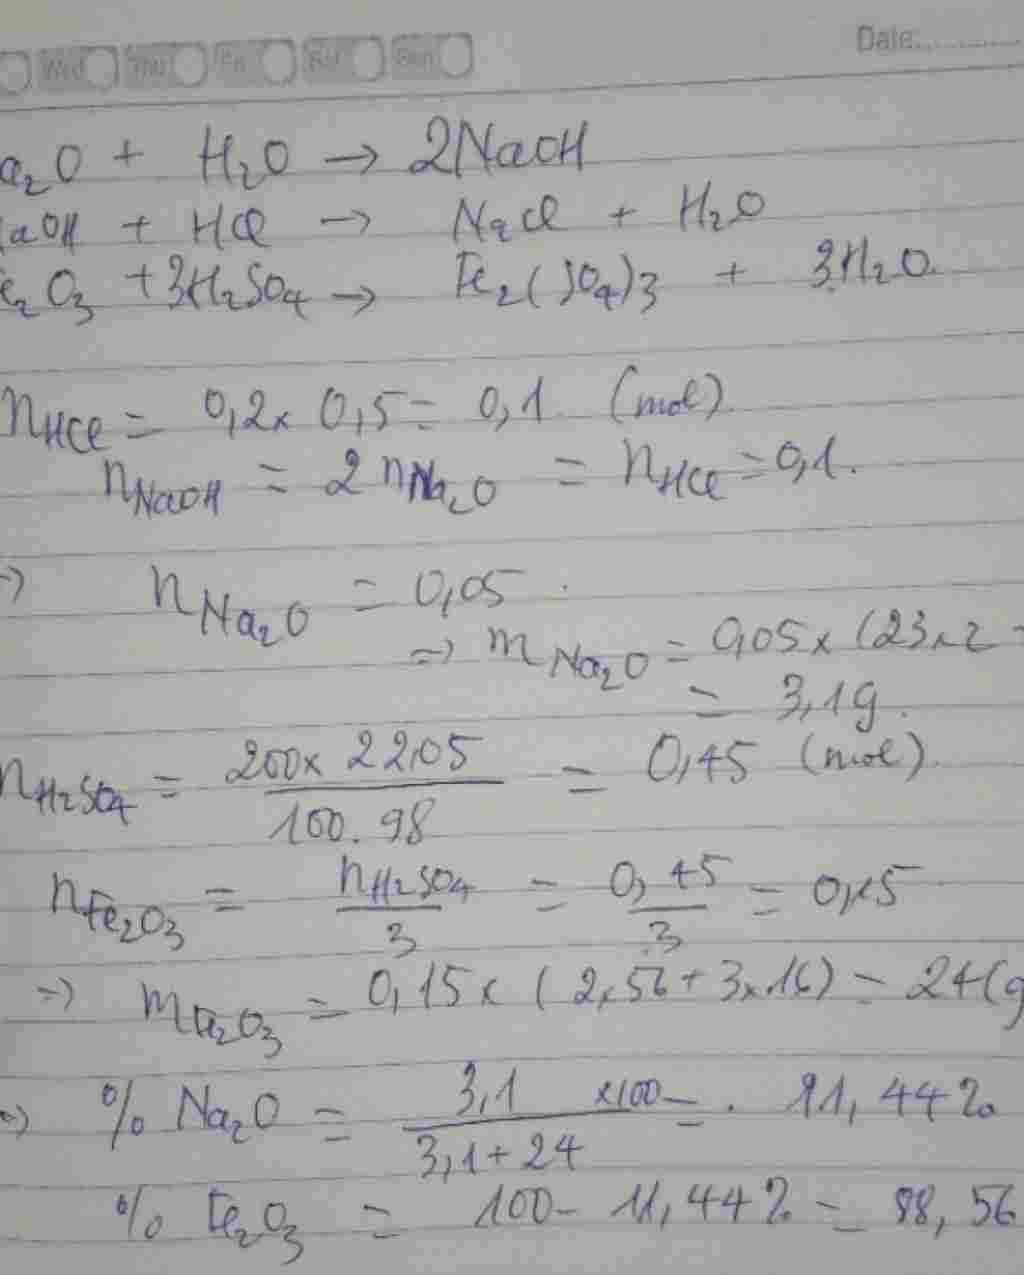 Wed Thu Fri Sat Sun Date............
a₂O + H₂O → 2NaOH
aOH + HCl → NaCl + H₂O
e₂O₃ + 3H₂SO₄ → Fe₂(SO₄)₃ + 3H₂O.
nHCl = 0,2 x 0,5 = 0,1 (mol).
nNaOH = 2 nNa₂O = nHCl = 0,1.
=> nNa₂O = 0,05.
=> mNa₂O = 0,05 x (23x2 +
= 3,1g.
nH₂SO₄ = 200x 22,05 / 100.98 = 0,45 (mol).
nFe₂O₃ = nH₂SO₄ / 3 = 0,45 / 3 = 0,15
=> mFe₂O₃ = 0,15 x (2x56 + 3x16) = 24 (g
=> % Na₂O = 3,1 / 3,1 + 24 x100 = 11,44%
% Fe₂O₃ = 100 - 11,44% = 88,56